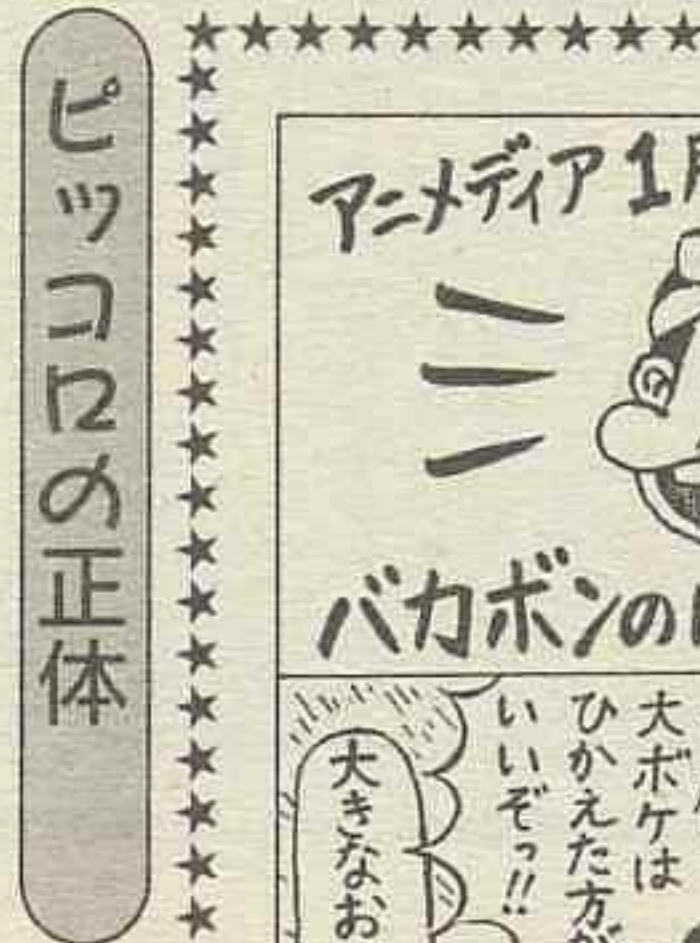 ピッコロの正体
アニメディア1月
バカボンの
大ボケは
ひかえた方が
いいぞっ!!
大きなお